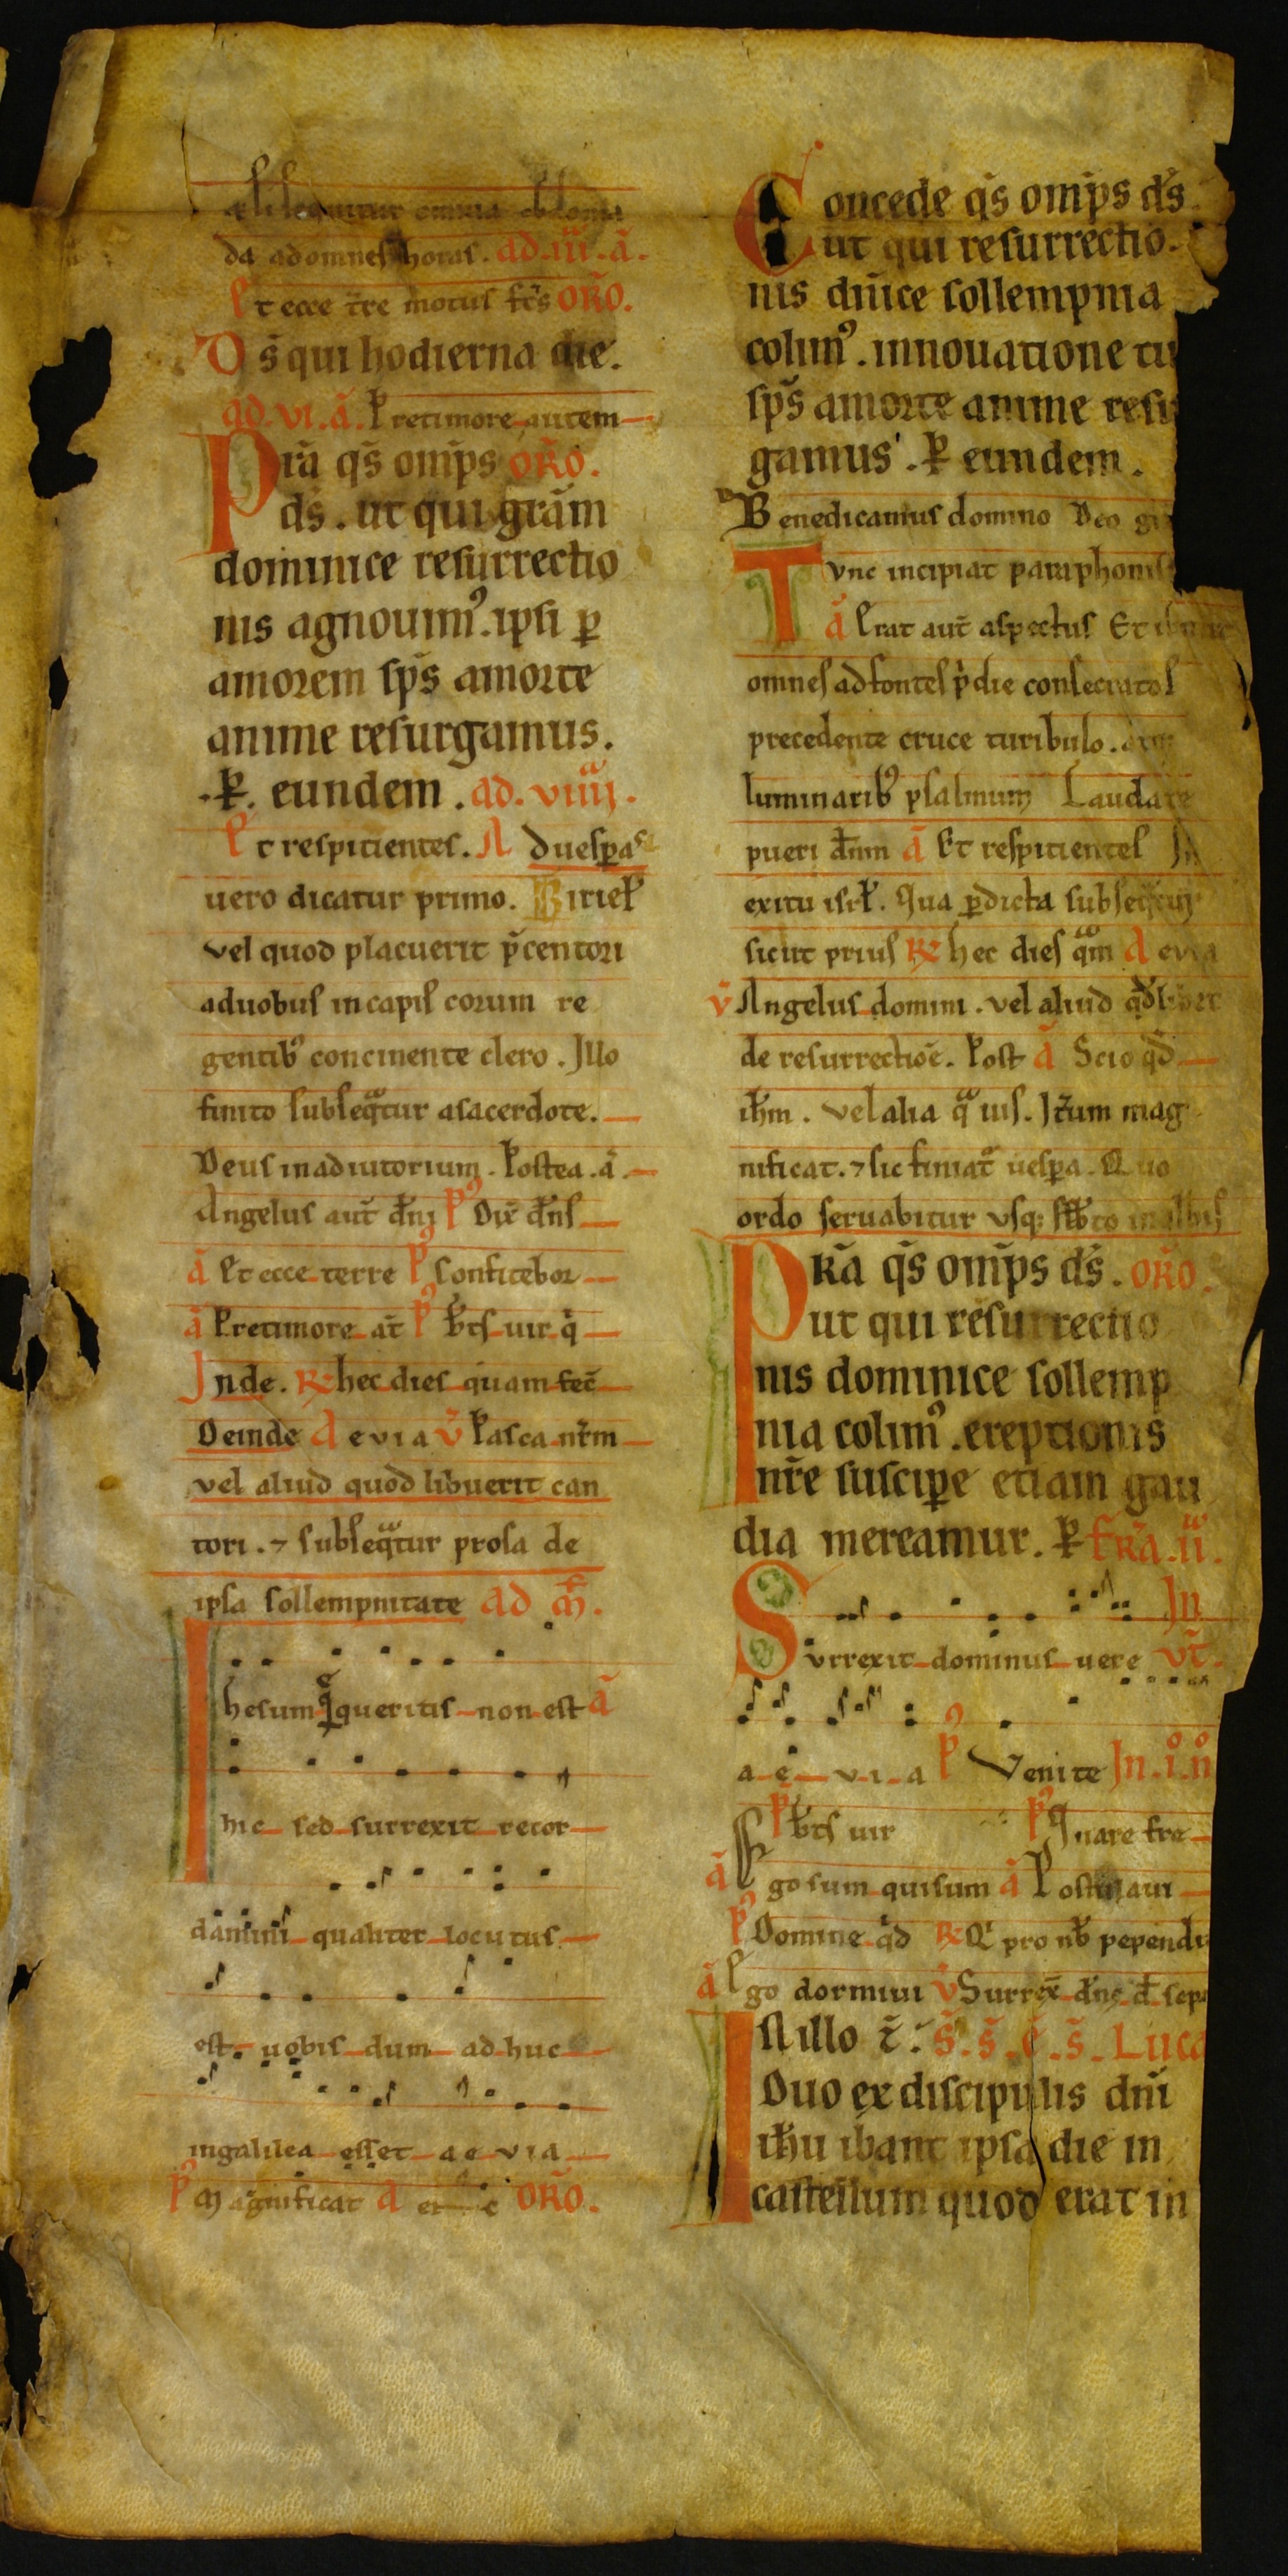 sequitur omnia ebdoma
da ad omnes horas. ad. iii. a̅.
Et ecce t̅re motus fc̅s ORO̅.
Ds̅ qui hodierna die.
ad. vi. a̅. Pretimore autem
Pra̅ qs̅ omp̅s ORO̅.
ds̅. ut qui gra̅m
dominice resurrectio
nis agnouimꝰ. ipsi ꝑ
amorem sp̅s amorte
anime resurgamus.
ꝑ. eundem. ad. viiii.
Et respicientes. Ad uesꝑas
uero dicatur primo. Kiriel̅
vel quod placuerit p̅centori
aduobus incapis corum re
gentibꝰ concinente clero. Illo
finito subseqᷓtur asacerdote.
Deus inadiutorium. Postea. a̅.
Angelus aut̅ dn̅i pꝰ Dix̅ dn̅s
a̅ Et ecce terre pꝰ Confitebor
a̅ Pretimore at̅ pꝰ Bt̅s uir q̇
Inde. ℞ hec dies quam fec̅
Deinde A evia v̅ Pasca nr̅m
vel aliud quod libuerit can
tori. ⁊ subseqᷓtur prosa de
ipsa sollempnitate ad M̅.
Ihesum q̇ queritis non est a̅
hic sed surrexit recor
damini qualiter locutus
est uobis dum adhuc
ingalilea esset aevia
pꝰ Magnificat A e c ORO̅.
Concede qs̅ omp̅s ds̅
ut qui resurrectio
nis dn̅ice sollempnia
colimꝰ. innouatione tu
sp̅s amorte anime resu
gamus. ꝑ eundem.
Benedicamus domino Deo g
Tvnc incipiat paraphonis
a̅ Erat aut̅ aspectus Et
omnes ad fontes ṗdie consecratos
precedente cruce turibulo.
luminaribꝰ psalmum Laudate
pueri dn̅m a̅ Et respicientes In
exitu isrl̅. Qua ꝑdicta
sicut prius ℞ hec dies qᷓm A evia
v̅ Angelus domini. vel aliud qd̅ libuer̅
de resurrectioe̅. Post a̅ Scio qd̅
ih̅m. vel alia qᷓ uis. Ite̅rum mag
nificat. ⁊ sic finiat̉ uesꝑa. Quo
ordo seruabitur vsqꝫ sbb̅to inalbis
PRa̅ qs̅ omp̅s ds̅. ORO̅.
ut qui resurrectio
nis dominice sollemp
nia colimꝰ. ereptionis
nr̅e susciꝑe etiam gau
dia mereamur. ꝑ fr̅a. ii. In
Svrrexit dominus uere vt̅.
a e v i a pꝰ Venite In. i̊. n̊
pꝰ Bt̅s uir pꝰ Quare fre
a̅ Ego sum qui sum a̅ Postulaui
pꝰ Domine qd̅ ℞ Qi pro nb̅ pependi
a̅ Ego dormiui v̅ Surrex̅ dn̅s d̅ sep
IN illo t̅. s̅. s̅. e̅. s̅. Luca
Duo ex discipulis dn̅i
ih̅u ibant ipsa die in
castellum quod erat in